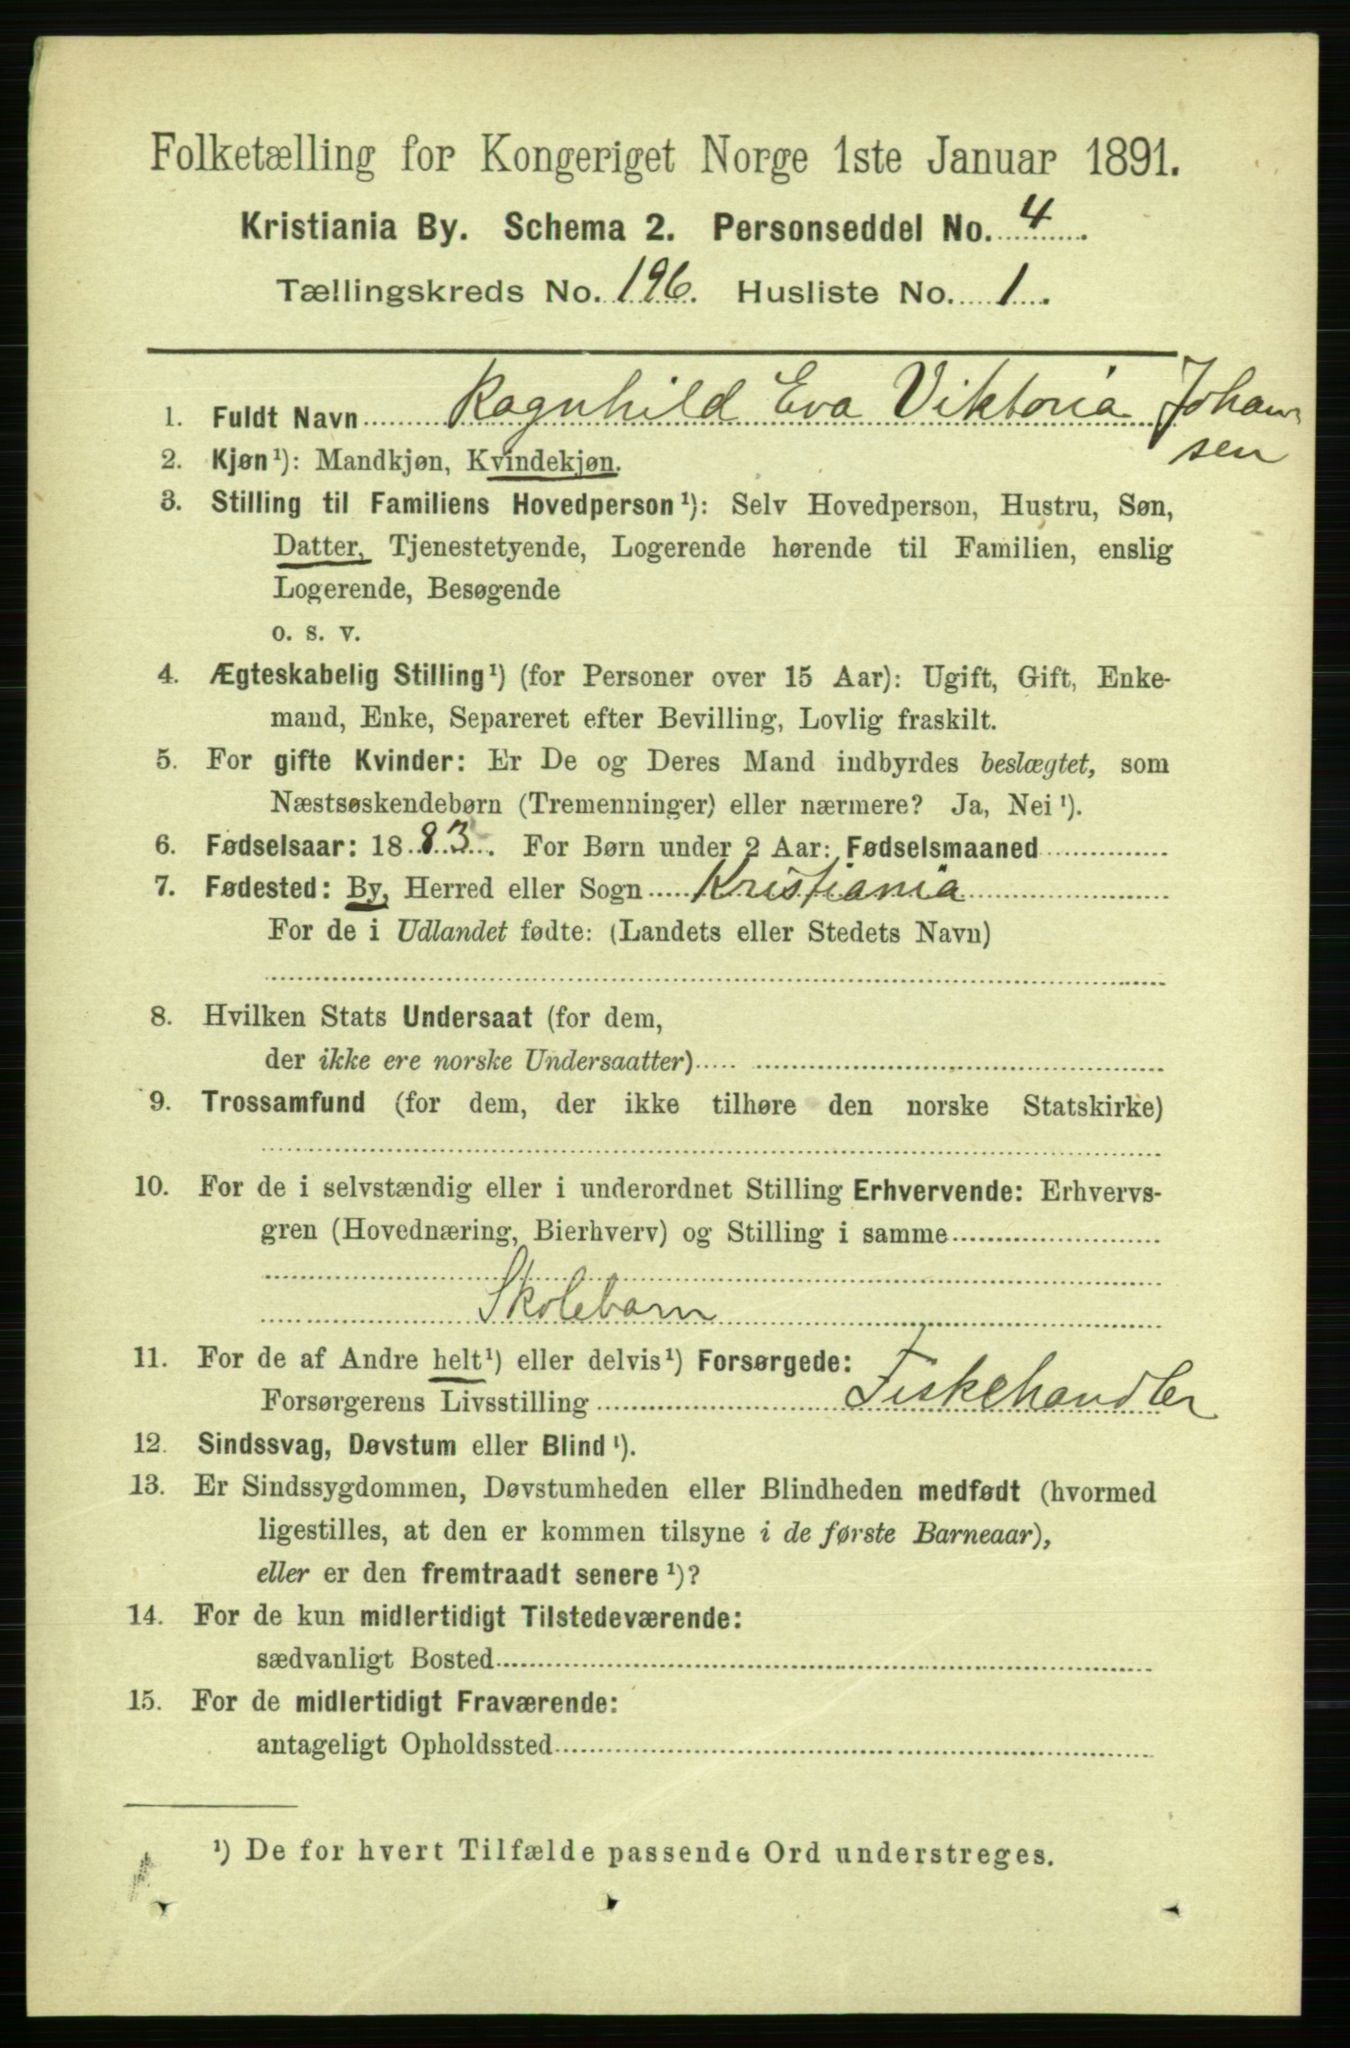 Folketælling for Kongeriget Norge 1ste Januar 1891.
Kristiania By. Schema 2. Personseddel No. 4.
Tællingskreds No. 196. Husliste No. 1.
1. Fuldt Navn Ragnhild Eva Viktoria Johan-
sen
2. Kjøn¹): Mandkjøn, Kvindekjøn.
3. Stilling til Familiens Hovedperson¹): Selv Hovedperson, Hustru, Søn,
Datter, Tjenestetyende, Logerende hørende til Familien, enslig
Logerende, Besøgende
o. s. v.
4. Ægteskabelig Stilling¹) (for Personer over 15 Aar): Ugift, Gift, Enke-
mand, Enke, Separeret efter Bevilling, Lovlig fraskilt.
5. For gifte Kvinder: Er De og Deres Mand indbyrdes beslægtet, som
Næstsøskendebørn (Tremenninger) eller nærmere? Ja, Nei¹).
6. Fødselsaar: 1883. For Børn under 2 Aar: Fødselsmaaned
7. Fødested: By, Herred eller Sogn Kristiania
For de i Udlandet fødte: (Landets eller Stedets Navn)
8. Hvilken Stats Undersaat (for dem,
der ikke ere norske Undersaatter)
9. Trossamfund (for dem, der ikke tilhøre den norske Statskirke)
10. For de i selvstændig eller i underordnet Stilling Erhvervende: Erhvervs-
gren (Hovednæring, Bierhverv) og Stilling i samme
Skolebarn
11. For de af Andre helt¹) eller delvis¹) Forsørgede:
Forsørgerens Livsstilling Fiskehandler
12. Sindssvag, Døvstum eller Blind¹).
13. Er Sindssygdommen, Døvstumheden eller Blindheden medfødt (hvormed
ligestilles, at den er kommen tilsyne i de første Barneaar),
eller er den fremtraadt senere¹)?
14. For de kun midlertidigt Tilstedeværende:
sædvanligt Bosted
15. For de midlertidigt Fraværende:
antageligt Opholdssted
¹) De for hvert Tilfælde passende Ord understreges.